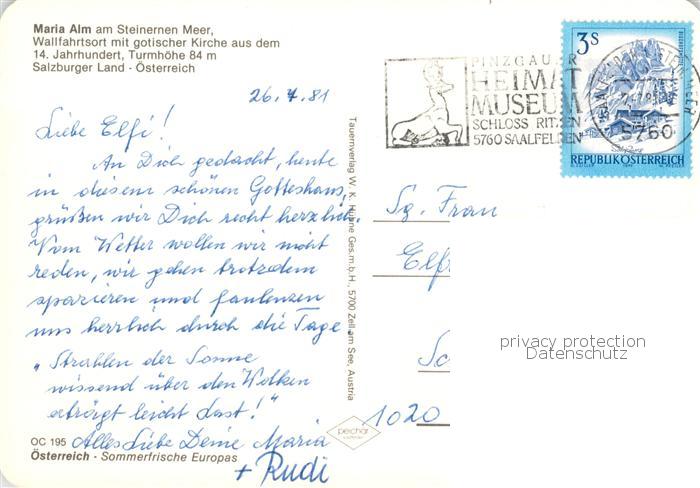 Maria Alm am Steinernen Meer,
Wallfahrtsort mit gotischer Kirche aus dem
14. Jahrhundert, Turmhöhe 84 m
Salzburger Land - Österreich
26.7.81
Liebe Elfi!
An Dich gedacht, heute
in diesem schönen Gotteshaus,
grüßen wir Dich recht herzlich
Vom Wetter wollen wir nicht
reden, wir gehen trotzdem
spazieren und faulenzen
uns herrlich durch die Tage
"Strahlen der Sonne
wissend über den Wolken
erträgt leicht Last!"
Alles Liebe Deine Maria
+ Rudi
OC 195
Österreich - Sommerfrische Europas
Tauernverlag W. K. Ges.m.b.H., 5700 Zell am See, Austria
peichar
PINZGAUER
HEIMAT
MUSEUM
SCHLOSS RITZEN
5760 SAALFELDEN
5760
3S
REPUBLIK ÖSTERREICH
Sg. Frau
Elf
Sc
1020
privacy protection
Datenschutz